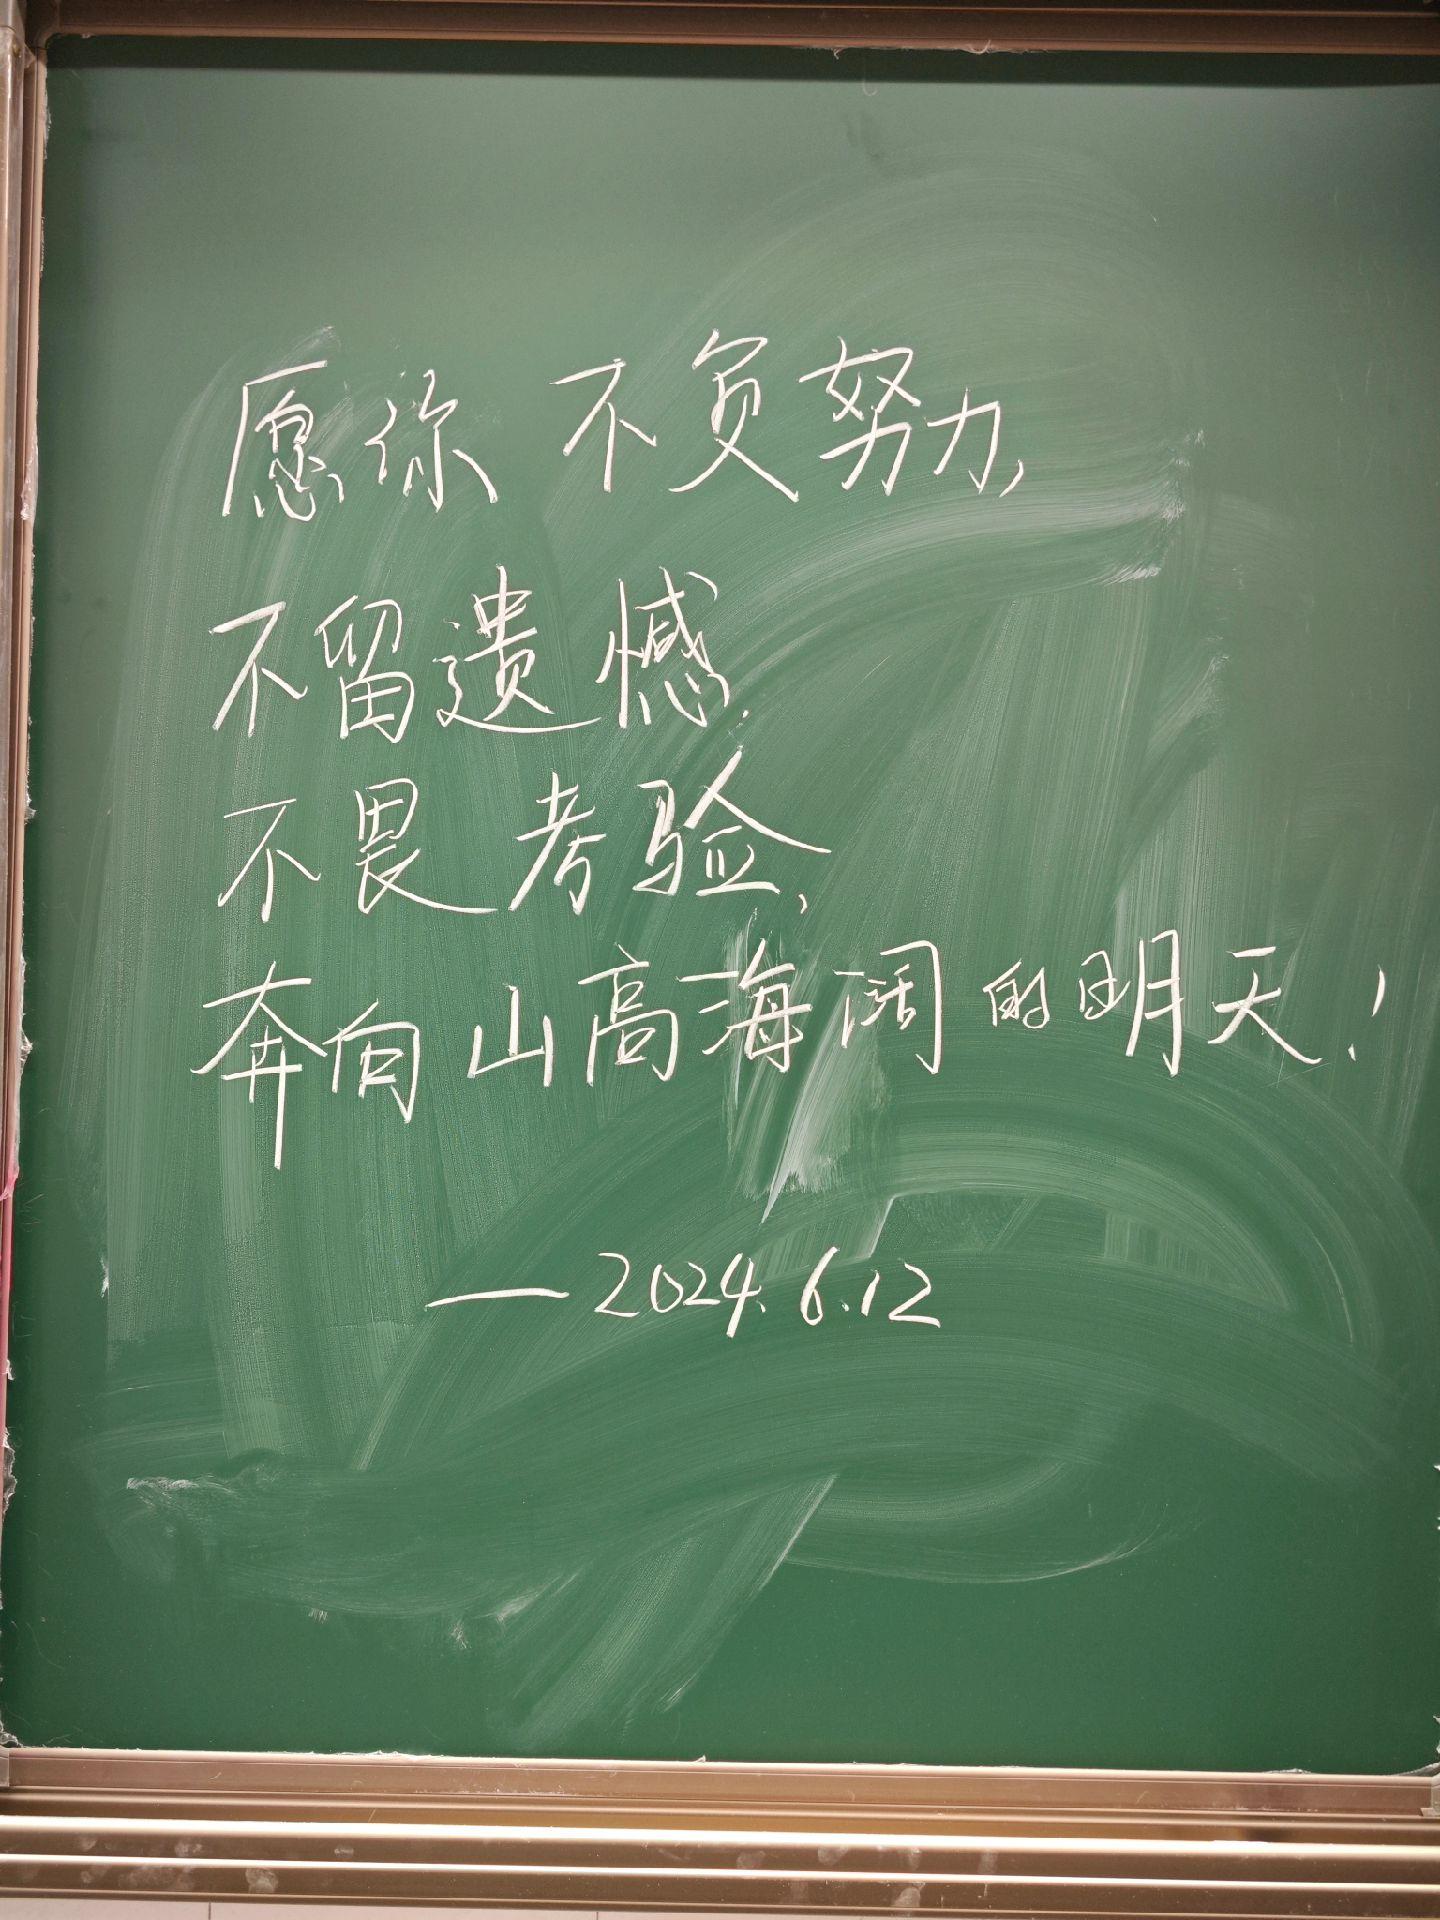 愿你不负努力,
不留遗憾,
不畏考验,
奔向山高海阔的明天!
—2024.6.12